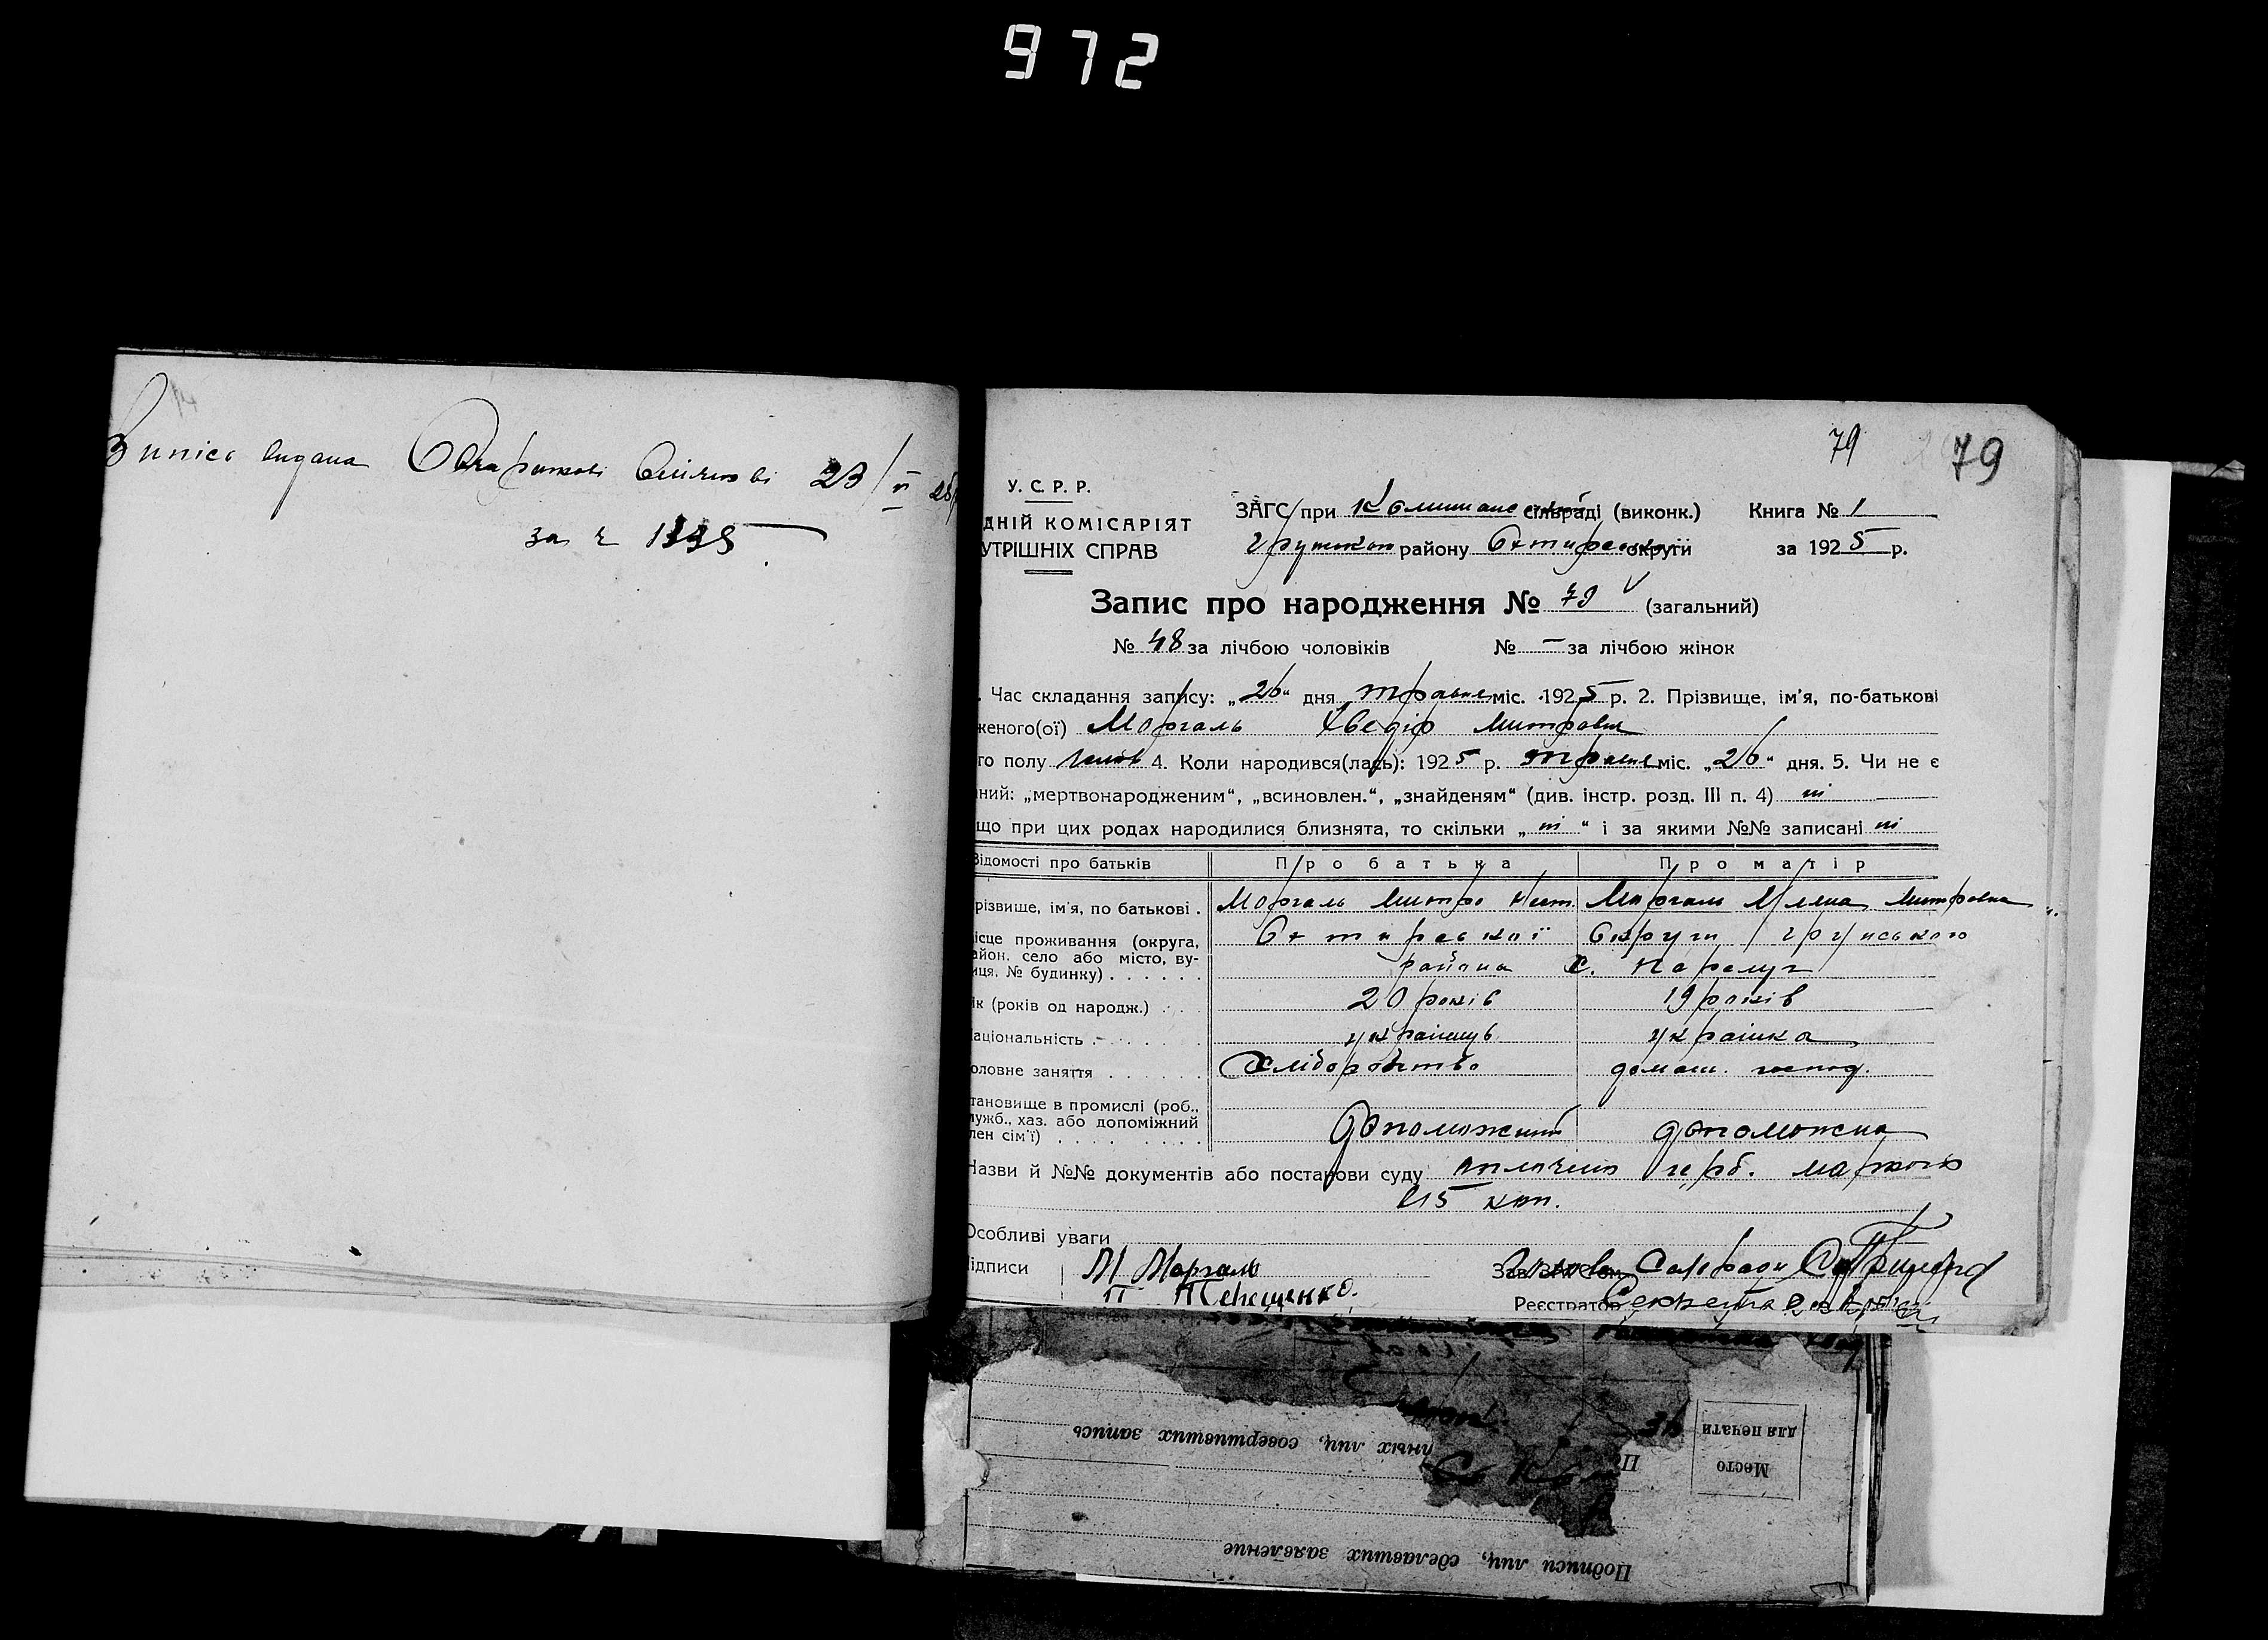 972
Випісь видана 23/VI 26р
за ч 1335
79 79
У. С. Р. Р.
ДНІЙ КОМІСАРІЯТ
УТРІШНІХ СПРАВ
ЗАГС при сільраді (виконк.) Книга № 1
району Охтирської округи за 1925 р.
Запис про народження № 79 (загальний)
№ 48 за лічбою чоловіків № — за лічбою жінок
. Час складання запису: „26“ дня травня міс. 1925 р. 2. Прізвище, ім'я, по-батькові
женого(ої) Моргаль Хведір Митрович
го полу чолов 4. Коли народився(лась): 1925 р. травня міс. „26“ дня. 5. Чи не є
ний: „мертвонародженим“, „всиновлен.“, „знайденям“ (див. інстр. розд. III п. 4) ні
що при цих родах народилися близнята, то скільки „ні“ і за якими №№ записані ні
Відомості про батьків Про батька Про матір
різвище, ім'я, по батькові . Моргаль Митро Моргаль Митровна
ісце проживання (округа, Охтирської Округи Грунського
айон, село або місто, ву-
иця, № будинку) . . . . . . района с.
ік (років од народж.) . . . 20 років 19 років
аціональність . . . . . . українець українка
оловне заняття . . . . . . Хліборобство домаш. господ.
тановище в промислі (роб.,
лужб., хаз. або допоміжний
лен сім'ї) . . . . . . . . допоможний допоможна
Назви й №№ документів або постанови суду оплачено герб. маркою
в 15 коп.
Особливі уваги
ідписи М Моргаль Зав. ЗАГСом Голова Сільради
П Терещенко. Реєстратор Секретар
для печати
Место
нных лиц, совершивших запись
Подписи лиц, сделавших заявление